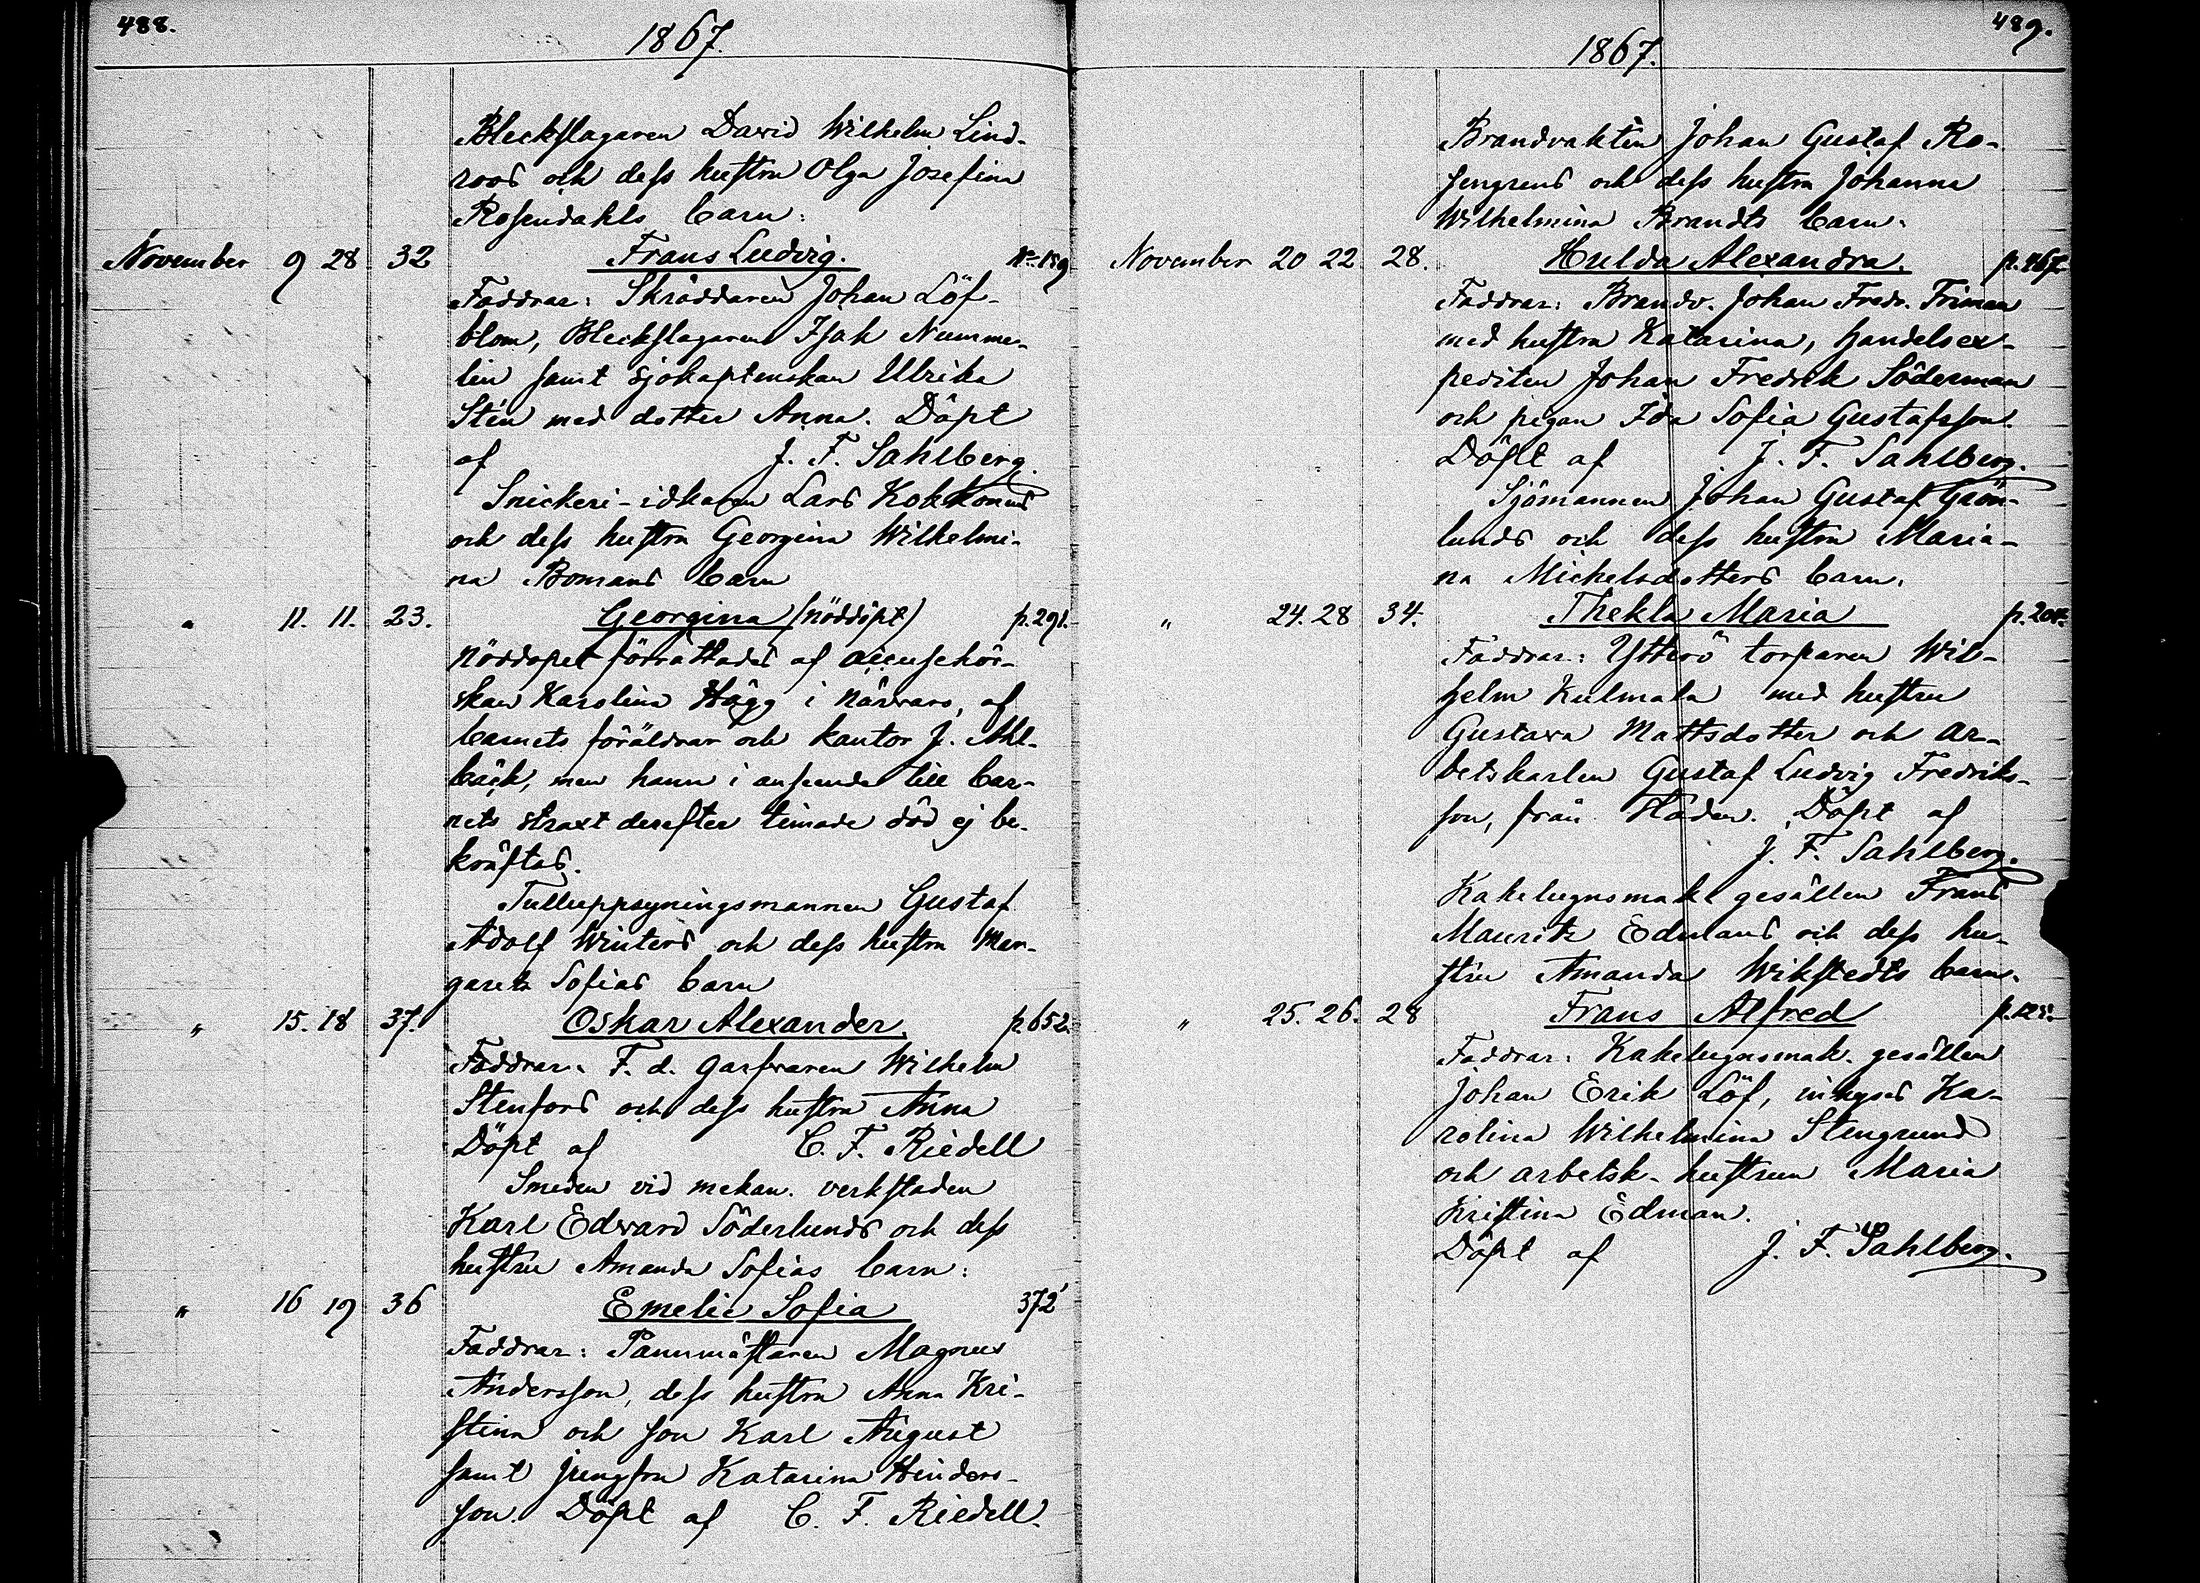 488.
1867.
Bleckslagaren David Wilhelm Lind-
roos och dess hustru Olga Josefina
Rosendahls barn:
November 9 28 32 Frans Ludvig. No 159
Faddrar: Skräddaren Johan Löf-
blom, Bleckslagaren Isak Numme-
lin samt sjökaptenskan Ulrika
Stén med dotter Anna. Döpt
af J. F. Sahlberg.
Snickeri-idkaren Lars Kokkonens
och dess hustru Georgina Wilhelmi-
na Bomans barn
" 11. 11. 23. Georgina (nöddöpt) p. 291.
Nöddopet förrättades af accuschör-
skan Karolina Hägg i närvaro, af
barnets föräldrar och kantor J. Ahl-
bäck, men hann i anseende till bar-
nets straxt derefter timade död ej be-
kräftas.
Tulluppsyningsmannen Gustaf
Adolf Winters och dess hustru Mar-
gareta Sofias barn
" 15. 18 37. Oskar Alexander. p 652.
Faddrar: F. d. garfvaren Wilhelm
Stenfors och dess hustru Anna
Döpt af C. F. Riedell
Smeden vid mekan. verkstaden
Karl Edvard Söderlunds och dess
hustru Amanda Sofias barn:
" 16 19 36 Emelie Sofia 372
Faddrar: Pannmästaren Magnus
Andersson, dess hustru Anna Kri-
stina och son Karl August
samt jungfru Katarina Hinders-
son. Döpt af C. F. Riedell.
489.
1867.
Brandvakten Johan Gustaf Ro-
sengrens och dess hustru Johanna
Wilhelmina Brandts barn.
November 20 22. 28. Hulda Alexandra. p. 467.
Faddrar: Brandv. Johan Fredr. Friman
med hustru Katarina, handelsex-
pediten Johan Fredrik Söderman
och pigan Ida Sofia Gustafsson.
Döpt af J. F. Sahlberg.
Sjömannen Johan Gustaf Grön-
lunds och dess hustru Maria-
na Michelsdotters barn.
" 24. 28 34. Thekla Maria p. 204.
Faddrar: Ytterö torparen Wil-
helm Kulmala med hustru
Gustava Mattsdotter och ar-
betskarlen Gustaf Ludvig Fredriks-
son, från Staden. Döpt af
J. F. Sahlberg.
Kakelugnsmak. gesällen Frans
Mauritz Edmans och dess hu-
stru Amanda Wikstedts barn.
" 25. 26. 28 Frans Alfred
Faddrar: Kakelugnsmak. gesällen
Johan Erik Löf, inhyses Ka-
rolina Wilhelmina Stengrund
och arbetsk. hustrun Maria
Kristina Edman.
Döpt af J. F. Sahlberg.